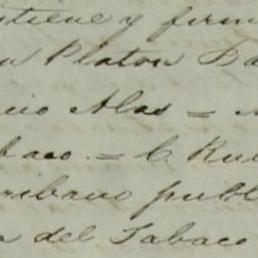 tiene y firm
n Platon Ba
cio Alas =
baco. = C. Rub
cribano publ
a del Tabaco